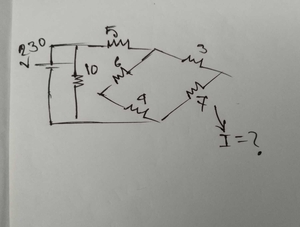 5
230
V
10
6
3
9
7
I = ?